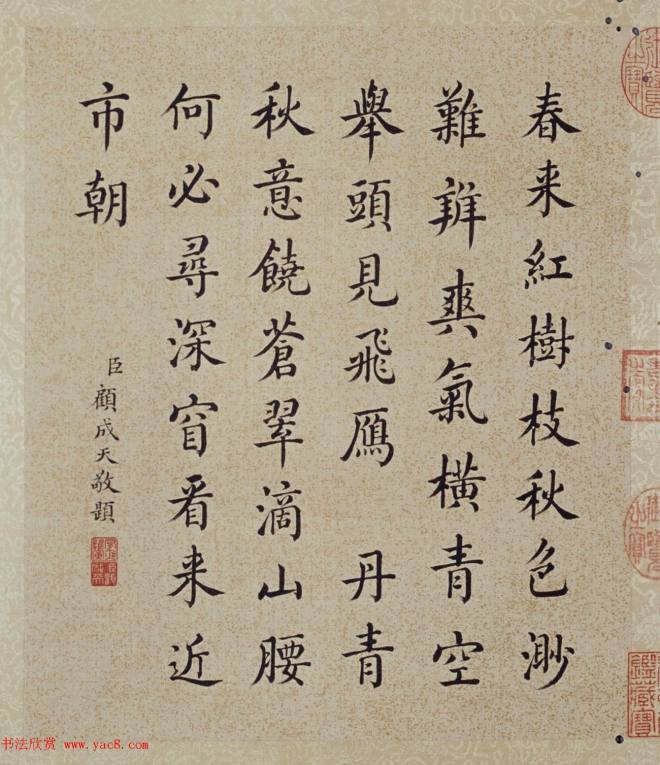 春来紅樹枝秋色渺
難辨爽氣橫青空
舉頭見飛鴈 丹青
秋意饒蒼翠滴山腰
何必尋深窅看来近
市朝
臣顧成天敬題
鑑藏寶
书法欣赏 www.yac8.com